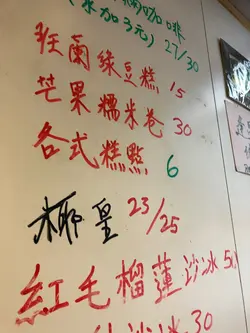 (凍加3元) 27/30
班蘭綠豆糕 15
芒果糯米卷 30
各式糕點 6
椰皇 23/25
紅毛榴蓮沙冰 50
沙冰 30